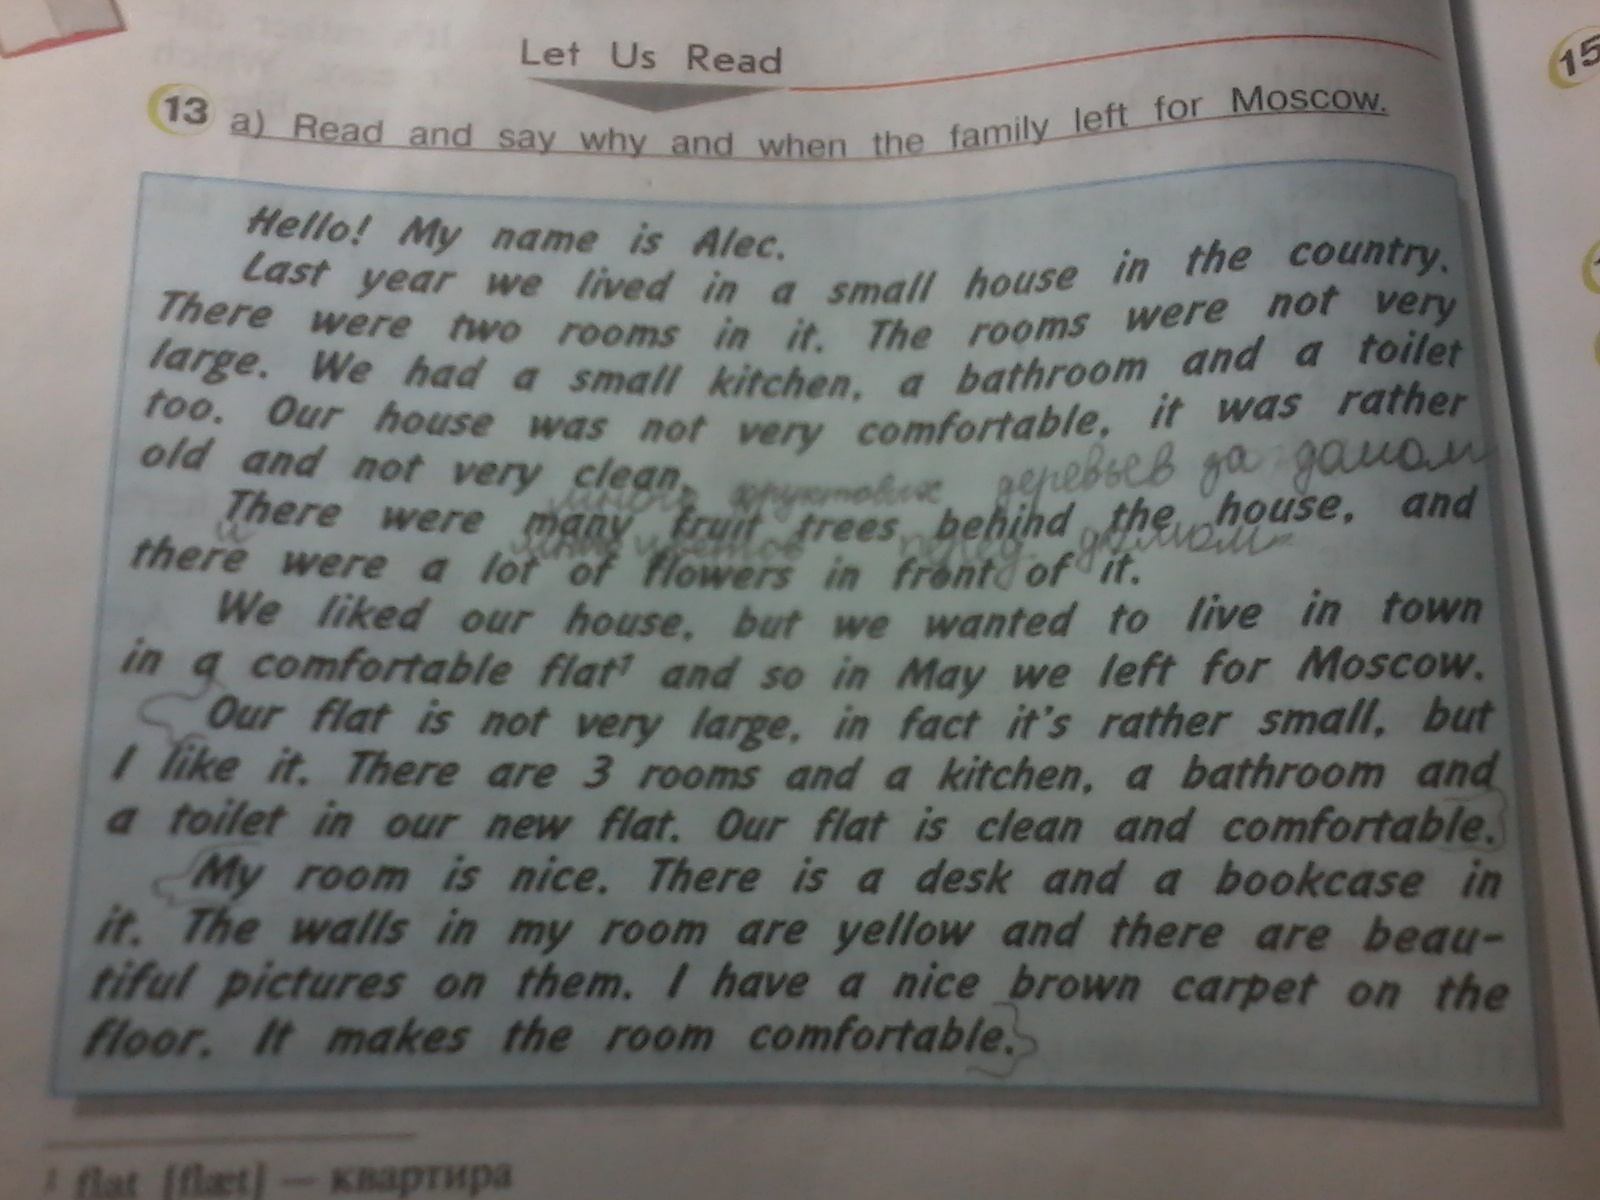 Let Us Read
13 a) Read and say why and when the family left for Moscow.
Hello! My name is Alec.
Last year we lived in a small house in the country.
There were two rooms in it. The rooms were not very
large. We had a small kitchen, a bathroom and a toilet
too. Our house was not very comfortable, it was rather
old and not very clean.
фруктовые деревьев за домом
There were many fruit trees behind the house, and
there were a lot of flowers in front of it.
We liked our house, but we wanted to live in town
in a comfortable flat¹ and so in May we left for Moscow.
Our flat is not very large, in fact it's rather small, but
I like it. There are 3 rooms and a kitchen, a bathroom and
a toilet in our new flat. Our flat is clean and comfortable.
My room is nice. There is a desk and a bookcase in
it. The walls in my room are yellow and there are beau-
tiful pictures on them. I have a nice brown carpet on the
floor. It makes the room comfortable.
¹ flat [flæt] – квартира
15